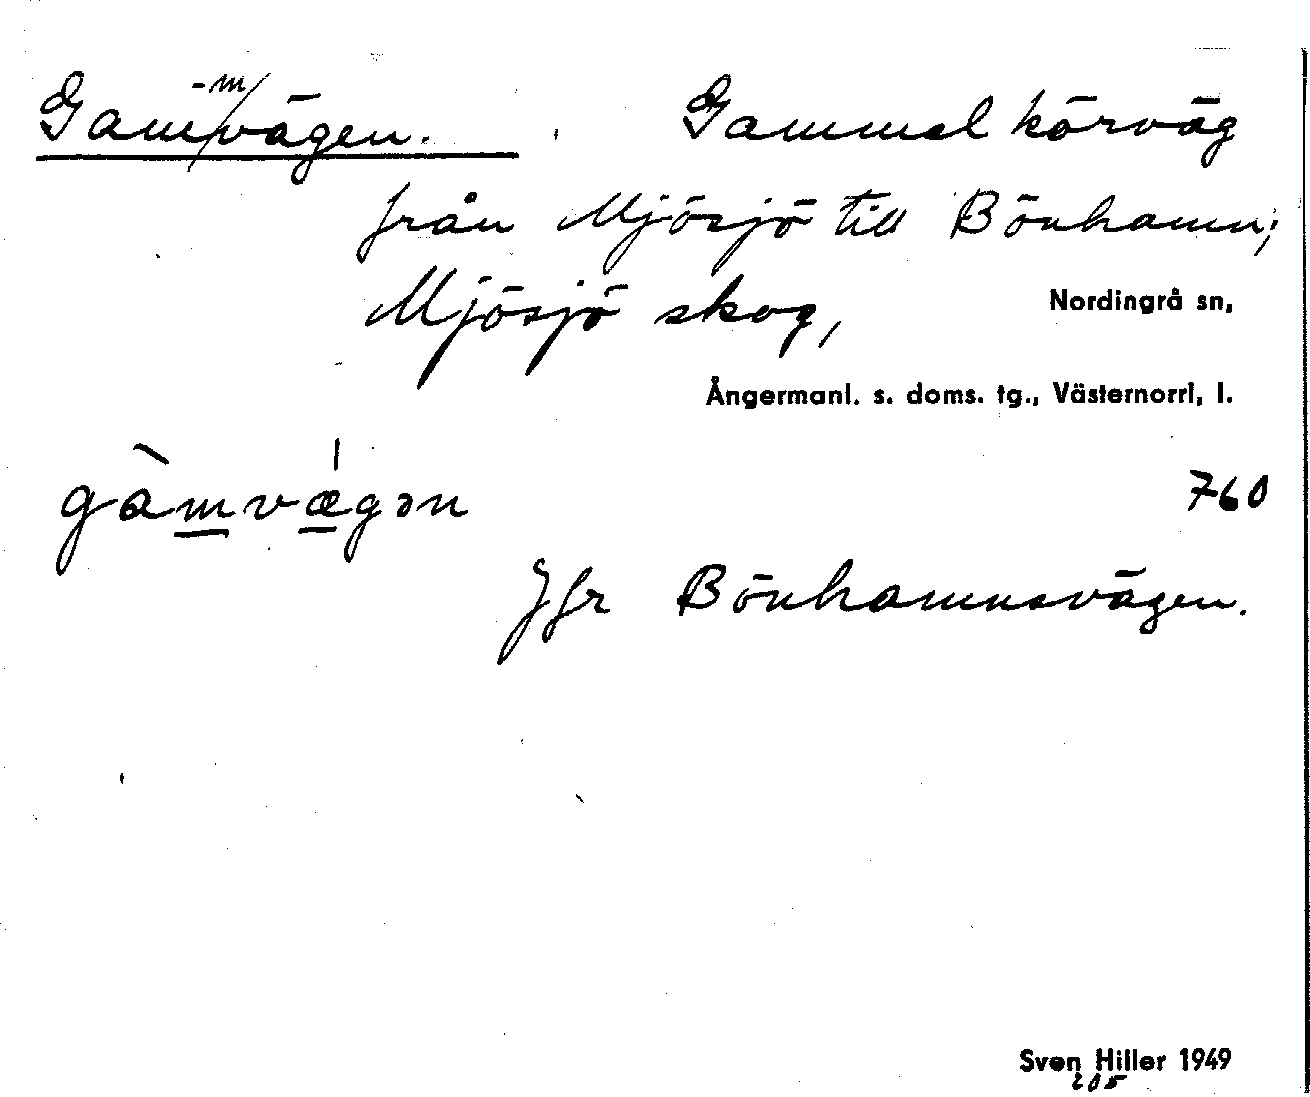 Gam/vägen. Gammal körväg
-m/
från Mjösjö till Bönhamn;
Mjösjö skog, Nordingrå sn,
Ångermanl. s. doms. tg., Västernorrl, l.
gàmvǽgən 760
Jfr Bönhamnsvägen.
Sven Hiller 1949
205